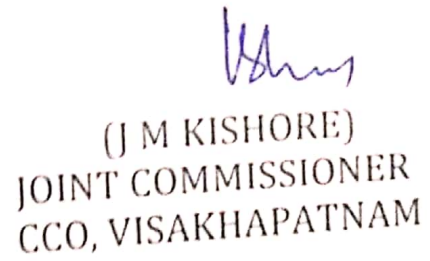 (J M KISHORE)
JOINT COMMISSIONER
CCO, VISAKHAPATNAM